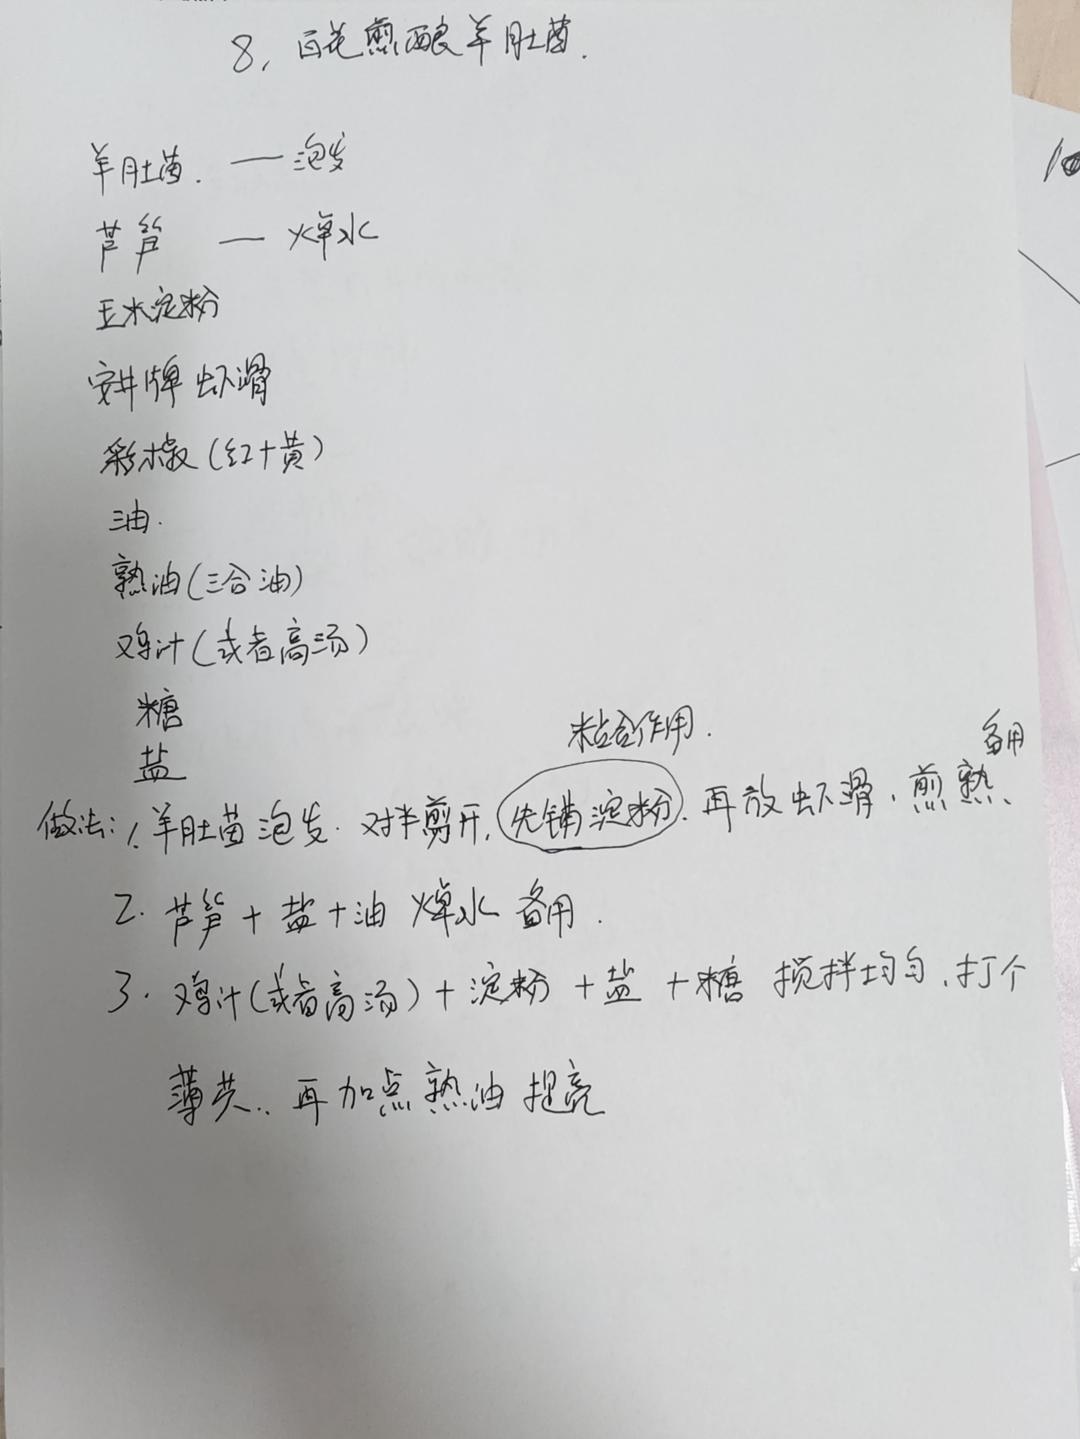 8, 百花煎酿羊肚菌.
羊肚菌. — 泡发
芦笋 — 焯水
玉米淀粉
安井牌虾滑
彩椒(红+黄)
油.
熟油(三合油)
鸡汁(或者高汤)
糖
盐
粘合作用.
备用
做法: 1. 羊肚菌泡发. 对半剪开, 先铺淀粉. 再放虾滑, 煎熟、
2. 芦笋+盐+油 焯水 备用.
3. 鸡汁(或者高汤)+淀粉+盐+糖 搅拌均匀, 打个
薄芡.. 再加点熟油提亮
10